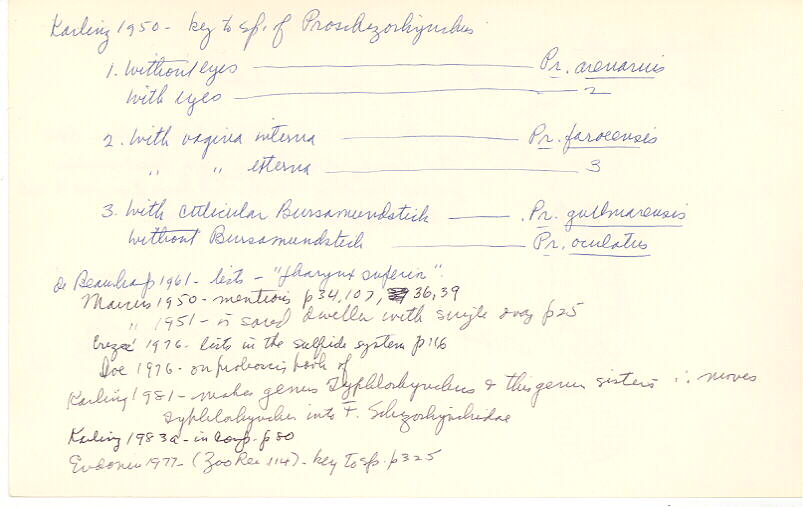 Karling 1950 - key to sp. of Proschizorhynchus
1. Without eyes — Pr. arenarius
With eyes — 2
2. With vagina interna — Pr. faroeensis
" " externa — 3
3. With cuticular Bursamundstick — Pr. gullmarensis
Without Bursamundstick — Pr. oculatus
de Beauchamp 1961 - lists - "pharynx
Marcus 1950 - mentions p34, 107, 36, 39
" 1951 - is sand dweller with single ovary p25
1976 - lists in the sulfide system p116
Doe 1976 - on proboscis of
Karling 1981 - makes genus Typhlorhynchus & this genus sisters ∴ moves
Typhlorhynchus into F. Schizorhynchidae
Karling 1983a - in p80
Evdonin 1977 - (Zoo Rec 114) - key to sp. p325